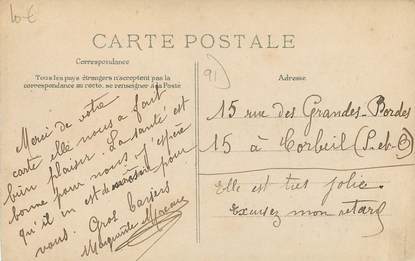 10 €
CARTE POSTALE
Correspondance
Tous les pays étrangers n'acceptent pas la
correspondance au recto, se renseigner à la Poste
91
Adresse
Merci de votre
carte elle nous a fait
bien plaisir. La santé est
bonne pour nous j'espère
qu'il en est de même pour
vous. Gros baisers
Marguerite
15 rue des Grandes-Bordes
15 à Corbeil (S-et-O)
Elle est très jolie.
Excusez mon retard